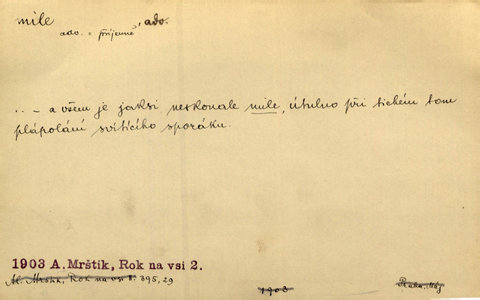 mile, adv.
adv. = příjemně
.. – a všem je jaksi neskonale mile, útulno při tichém tom
plápolání svítícího sporáku.
1903 A. Mrštík, Rok na vsi 2.
Al. Mrštík, Rok na vsi II. 395, 29
1903